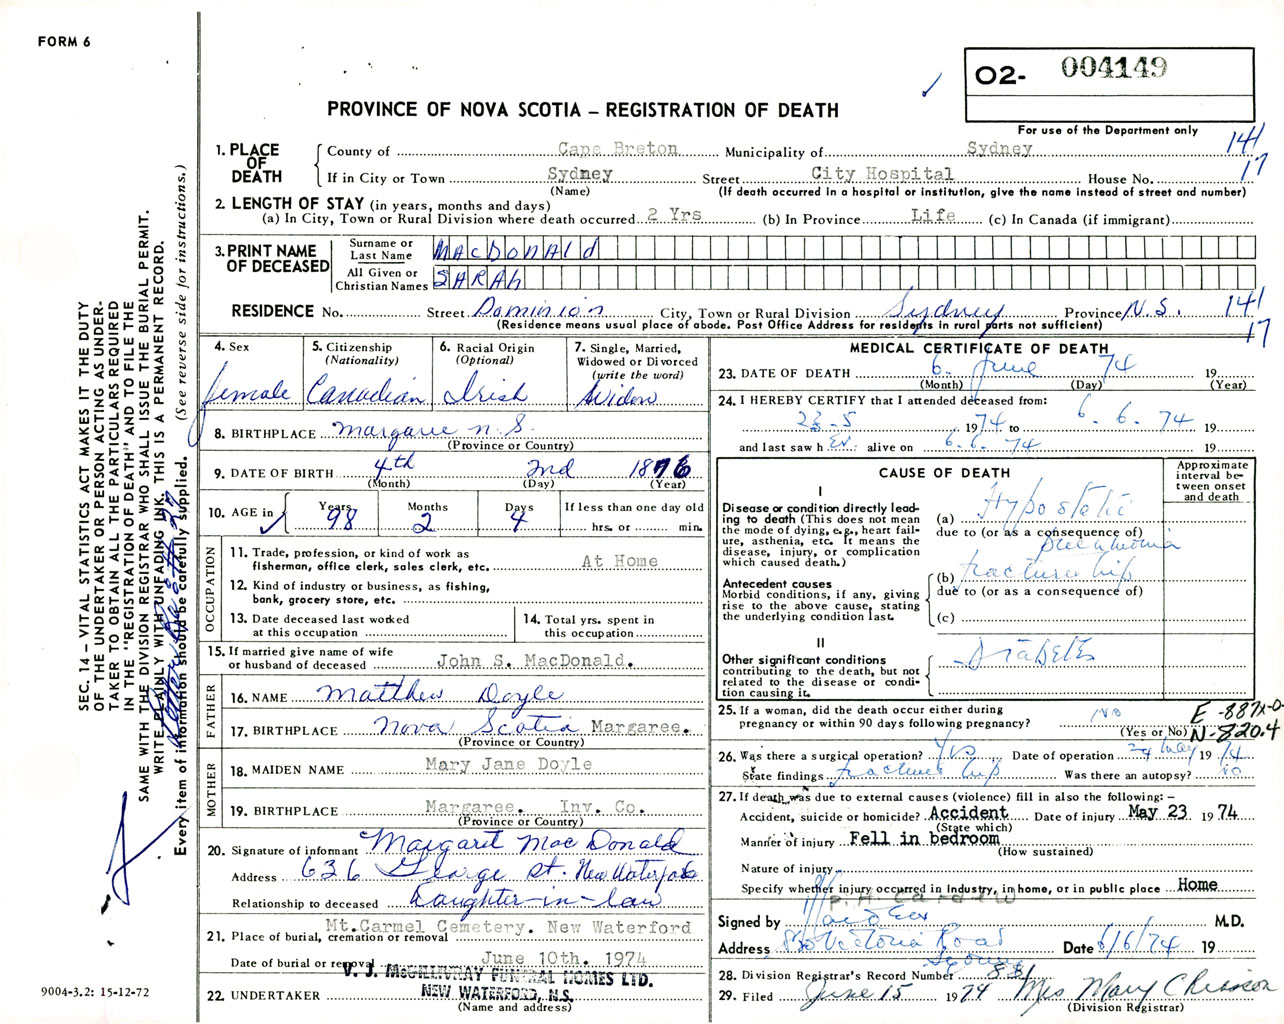 FORM 6
O2- 004149
For use of the Department only
PROVINCE OF NOVA SCOTIA – REGISTRATION OF DEATH
1. PLACE OF DEATH
County of Cape Breton Municipality of Sydney 141
If in City or Town Sydney Street City Hospital House No. 17
(Name) (If death occurred in a hospital or institution, give the name instead of street and number)
2. LENGTH OF STAY (in years, months and days)
(a) In City, Town or Rural Division where death occurred 2 Yrs (b) In Province Life (c) In Canada (if immigrant)
3. PRINT NAME OF DECEASED
Surname or Last Name MACDONALD
All Given or Christian Names SARAH
RESIDENCE No. Street Dominion City, Town or Rural Division Sydney Province N.S. 141
(Residence means usual place of abode. Post Office Address for residents in rural parts not sufficient) 17
4. Sex female
5. Citizenship (Nationality) Canadian
6. Racial Origin (Optional) Irish
7. Single, Married, Widowed or Divorced (write the word) Widow
8. BIRTHPLACE Margaree N.S.
(Province or Country)
9. DATE OF BIRTH 4th 2nd 1876
(Month) (Day) (Year)
10. AGE in Years 98 Months 2 Days 4 If less than one day old hrs. or min.
OCCUPATION
11. Trade, profession, or kind of work as fisherman, office clerk, sales clerk, etc. At Home
12. Kind of industry or business, as fishing, bank, grocery store, etc.
13. Date deceased last worked at this occupation
14. Total yrs. spent in this occupation
15. If married give name of wife or husband of deceased John S. MacDonald.
FATHER
16. NAME Matthew Doyle
17. BIRTHPLACE Nova Scotia Margaree.
(Province or Country)
MOTHER
18. MAIDEN NAME Mary Jane Doyle
19. BIRTHPLACE Margaree. Inv. Co.
(Province or Country)
20. Signature of informant Margaret MacDonald
Address 636 George St. New Waterford
Relationship to deceased Daughter-in-law
21. Place of burial, cremation or removal Mt.Carmel Cemetery. New Waterford
Date of burial or removal June 10th. 1974
22. UNDERTAKER V. J. McGILLIVRAY FUNERAL HOMES LTD.
NEW WATERFORD, N.S.
(Name and address)
MEDICAL CERTIFICATE OF DEATH
23. DATE OF DEATH 6. June 74 19
(Month) (Day) (Year)
24. I HEREBY CERTIFY that I attended deceased from:
23-5 1974 to 6.6.74 19
and last saw her alive on 6.6.74 19
CAUSE OF DEATH
Approximate interval between onset and death
I
Disease or condition directly leading to death (This does not mean the mode of dying, e.g., heart failure, asthenia, etc. It means the disease, injury, or complication which caused death.)
(a) Hypostatic
due to (or as a consequence of)
pneumonia
Antecedent causes
Morbid conditions, if any, giving rise to the above cause, stating the underlying condition last.
(b) fracture hip
due to (or as a consequence of)
(c)
II
Other significant conditions contributing to the death, but not related to the disease or condition causing it.
Diabetes
25. If a woman, did the death occur either during pregnancy or within 90 days following pregnancy? No
(Yes or No)
E-887X-0
N-820.4
26. Was there a surgical operation? Yes Date of operation 24 May 1974
State findings fracture hip Was there an autopsy? no
27. If death was due to external causes (violence) fill in also the following: –
Accident, suicide or homicide? Accident Date of injury May 23 1974
(State which)
Manner of injury Fell in bedroom
(How sustained)
Nature of injury
Specify whether injury occurred in Industry, in home, or in public place Home
Signed by M.D.
Address Victoria Road Date 6/6/74 19
Sydney
28. Division Registrar's Record Number
29. Filed June 15 1974 Mrs Mary
(Division Registrar)
SEC. 14 – VITAL STATISTICS ACT MAKES IT THE DUTY
OF THE UNDERTAKER OR PERSON ACTING AS UNDER-
TAKER TO OBTAIN ALL THE PARTICULARS REQUIRED
IN THE "REGISTRATION OF DEATH" AND TO FILE THE
SAME WITH THE DIVISION REGISTRAR WHO SHALL ISSUE THE BURIAL PERMIT.
WRITE PLAINLY WITH UNFADING INK. THIS IS A PERMANENT RECORD.
Every item of information should be carefully supplied. (See reverse side for instructions.)
9004-3.2: 15-12-72